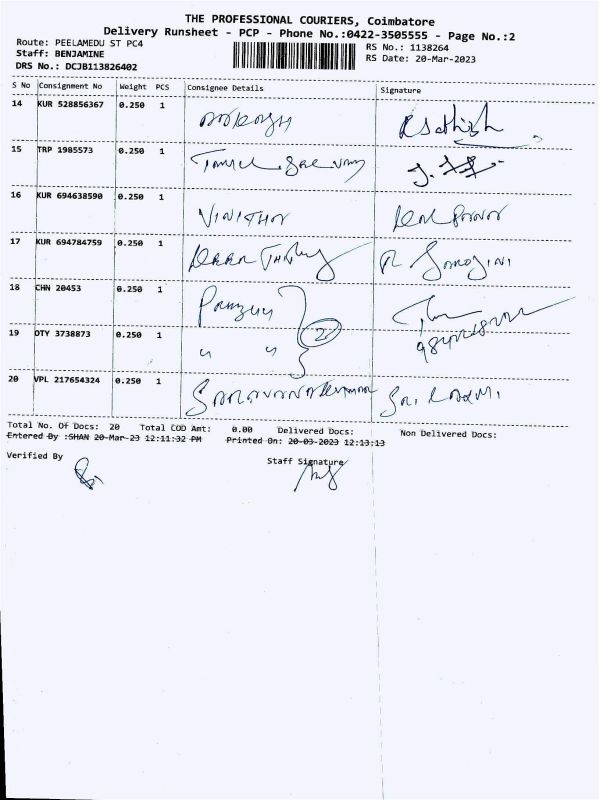 THE PROFESSIONAL COURIERS, Coimbatore
Delivery Runsheet - PCP - Phone No.:0422-3505555 - Page No.:2
Route: PEELAMEDU ST PC4
Staff: BENJAMINE
DRS No.: DCJB113826402
RS No.: 1138264
RS Date: 20-Mar-2023
S No Consignment No Weight PCS Consignee Details Signature
14 KUR 528856367 0.250 1 R Sathish
15 TRP 1985573 0.250 1
16 KUR 694638590 0.250 1
17 KUR 694784759 0.250 1 R Sarojini
18 CHN 20453 0.250 1
2
19 DTY 3738873 0.250 1 " "
20 VPL 217654324 0.250 1
Total No. Of Docs: 20 Total COD Amt: 0.00 Delivered Docs: Non Delivered Docs:
Entered By :SHAN 20-Mar-23 12:11:32 PM Printed On: 20-03-2023 12:13:13
Verified By
Staff Signature